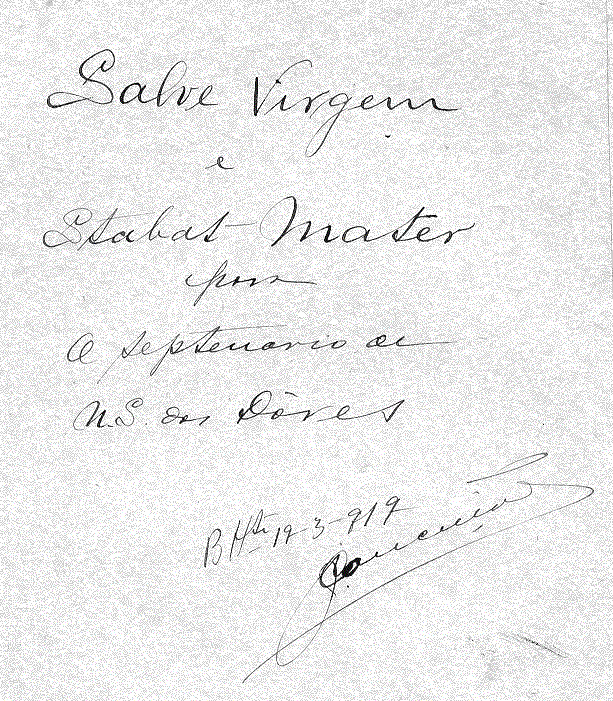 Salve Virgem
e
Stabat Mater
para
O septenario de
N.S. das Dôres
B Hte 19-3-919